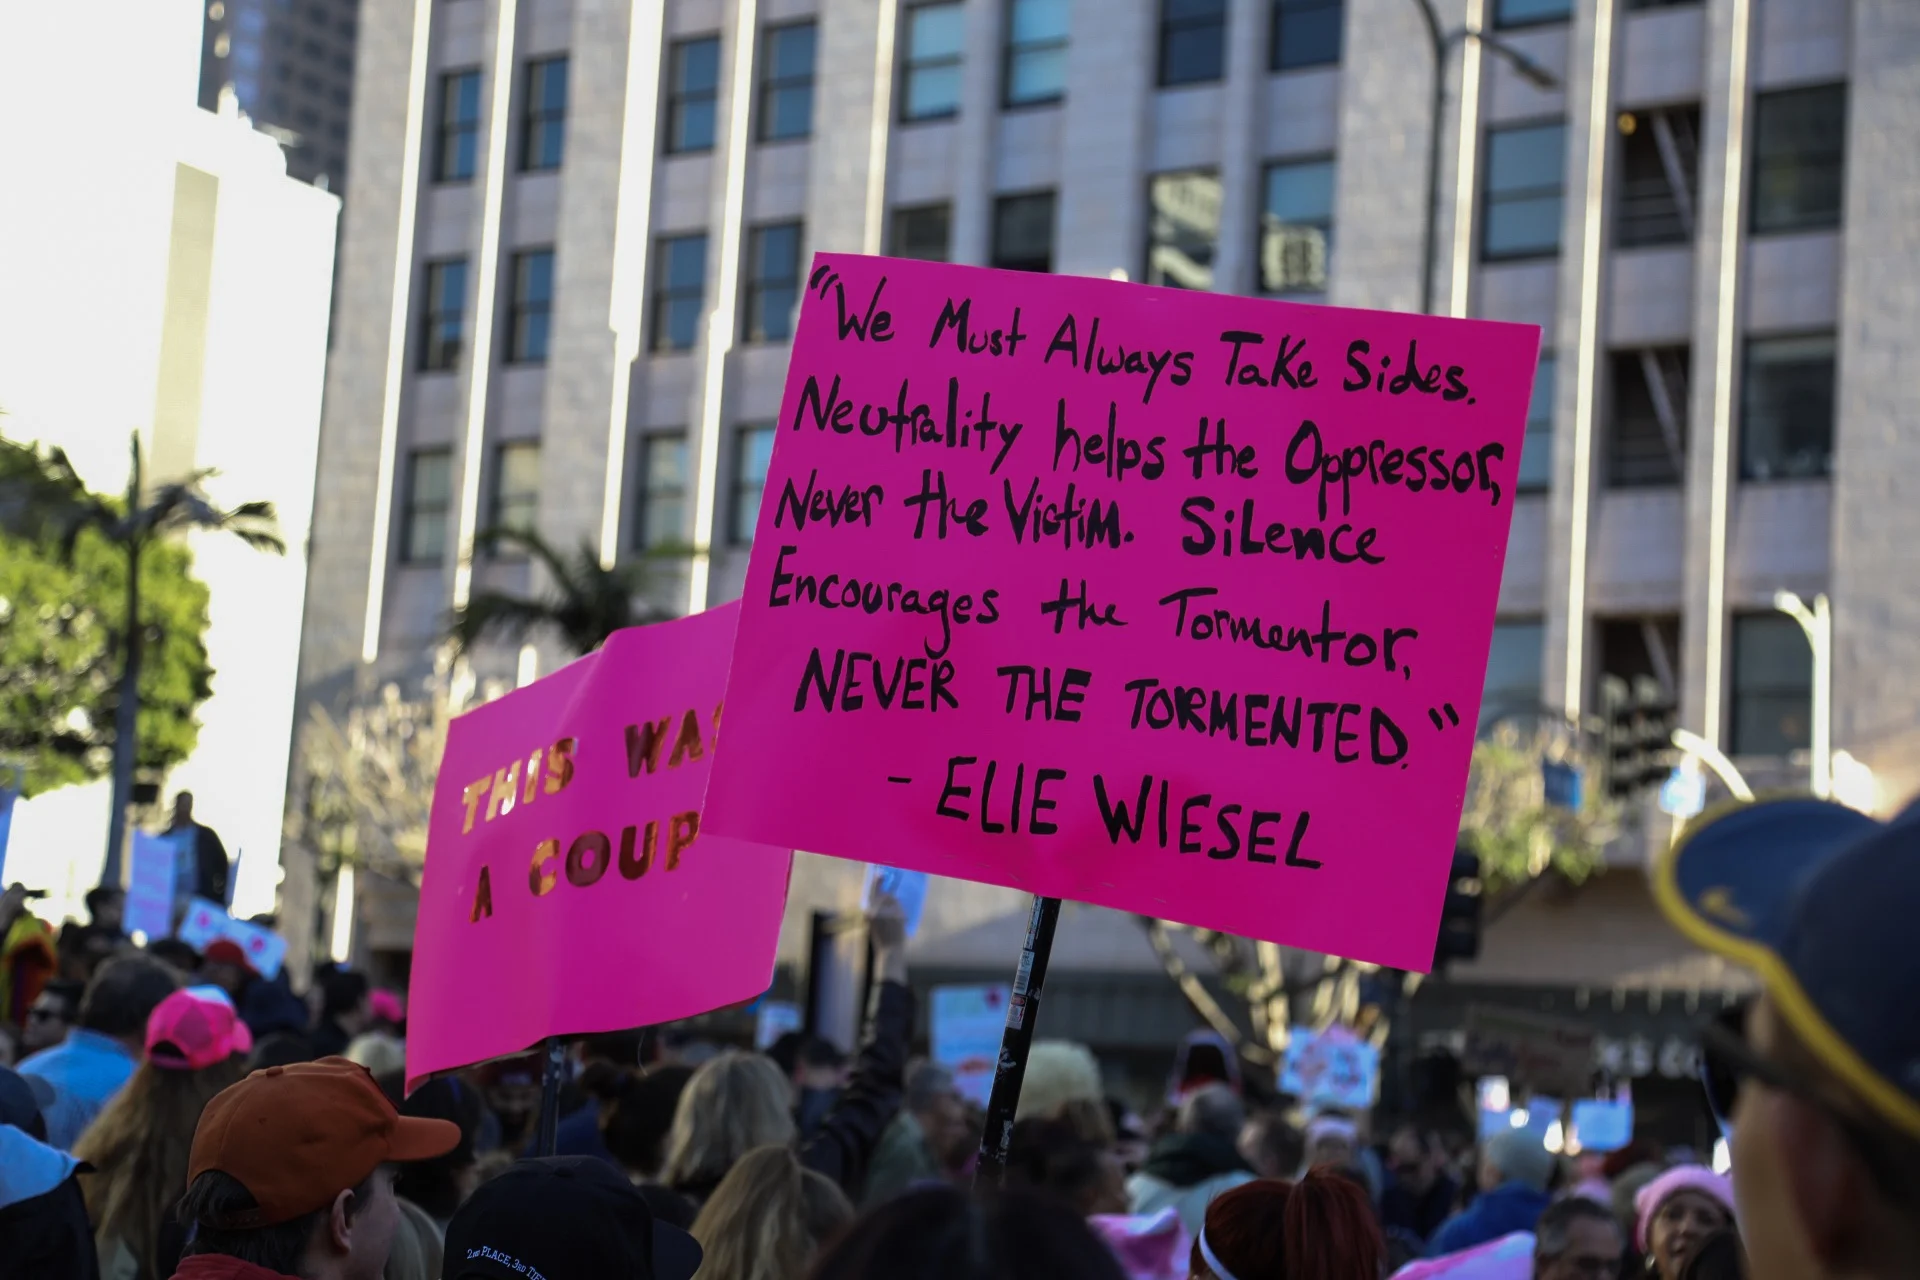 "We Must Always Take Sides.
Neutrality helps the Oppressor,
Never the Victim. Silence
Encourages the Tormentor,
NEVER THE TORMENTED."
- ELIE WIESEL
THIS WAS
A COUP
2ND PLACE, 3RD